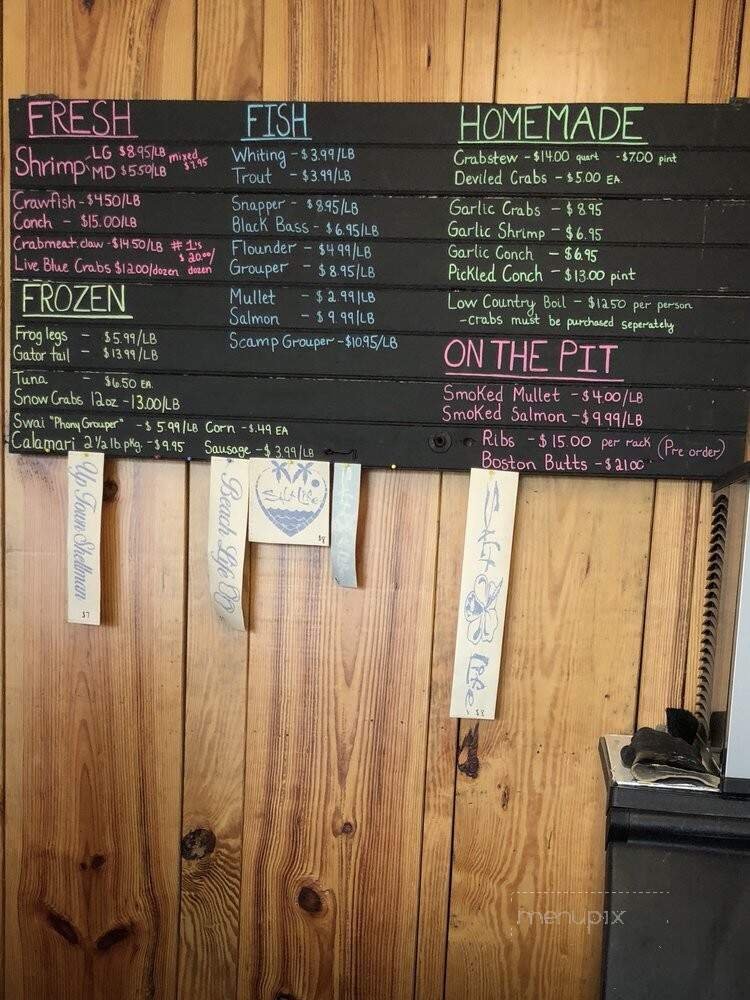 FRESH
Shrimp LG $8.95/LB mixed
MD $5.50/LB $7.95
Crawfish - $4.50/LB
Conch - $15.00/LB
Crabmeat. claw - $14.50/LB #1's
$20.00/
Live Blue Crabs $12.00/dozen dozen
FROZEN
Frog legs - $5.99/LB
Gator tail - $13.99/LB
Tuna - $6.50 EA.
Snow Crabs 12oz - 13.00/LB
Swai "Phony Grouper" - $5.99/LB Corn - $.49 EA
Calamari 2 1/2 lb pkg. - $9.95 Sausage - $3.99/LB
FISH
Whiting - $3.99/LB
Trout - $3.99/LB
Snapper - $8.95/LB
Black Bass - $6.95/LB
Flounder - $4.99/LB
Grouper - $8.95/LB
Mullet - $2.99/LB
Salmon - $9.99/LB
Scamp Grouper - $10.95/LB
HOMEMADE
Crabstew - $14.00 quart - $7.00 pint
Deviled Crabs - $5.00 EA.
Garlic Crabs - $8.95
Garlic Shrimp - $6.95
Garlic Conch - $6.95
Pickled Conch - $13.00 pint
Low Country Boil - $12.50 per person
-crabs must be purchased seperately
ON THE PIT
Smoked Mullet - $4.00/LB
Smoked Salmon - $9.99/LB
Ribs - $15.00 per rack (Pre order)
Boston Butts - $21.00
Up Town Shellman
$7
Beach Life
Salt Life
$8
Salt Life
$8
menupix